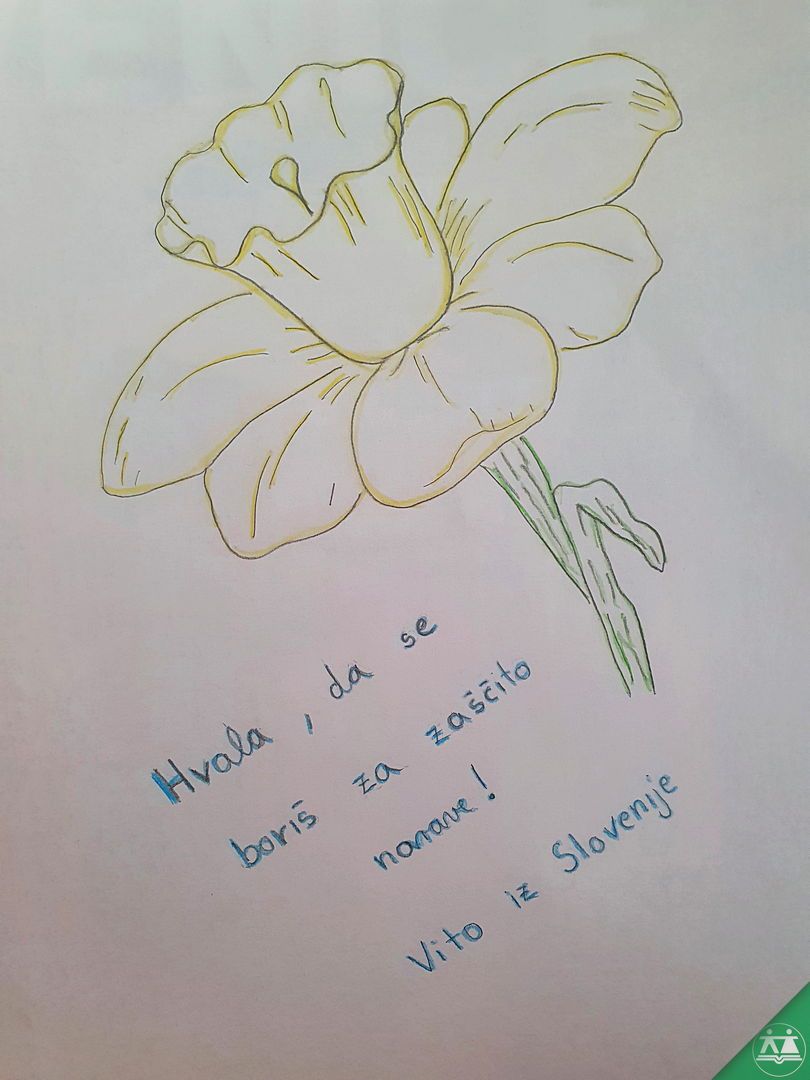 Hvala, da se
boriš za zaščito
narave!
Vito iz Slovenije